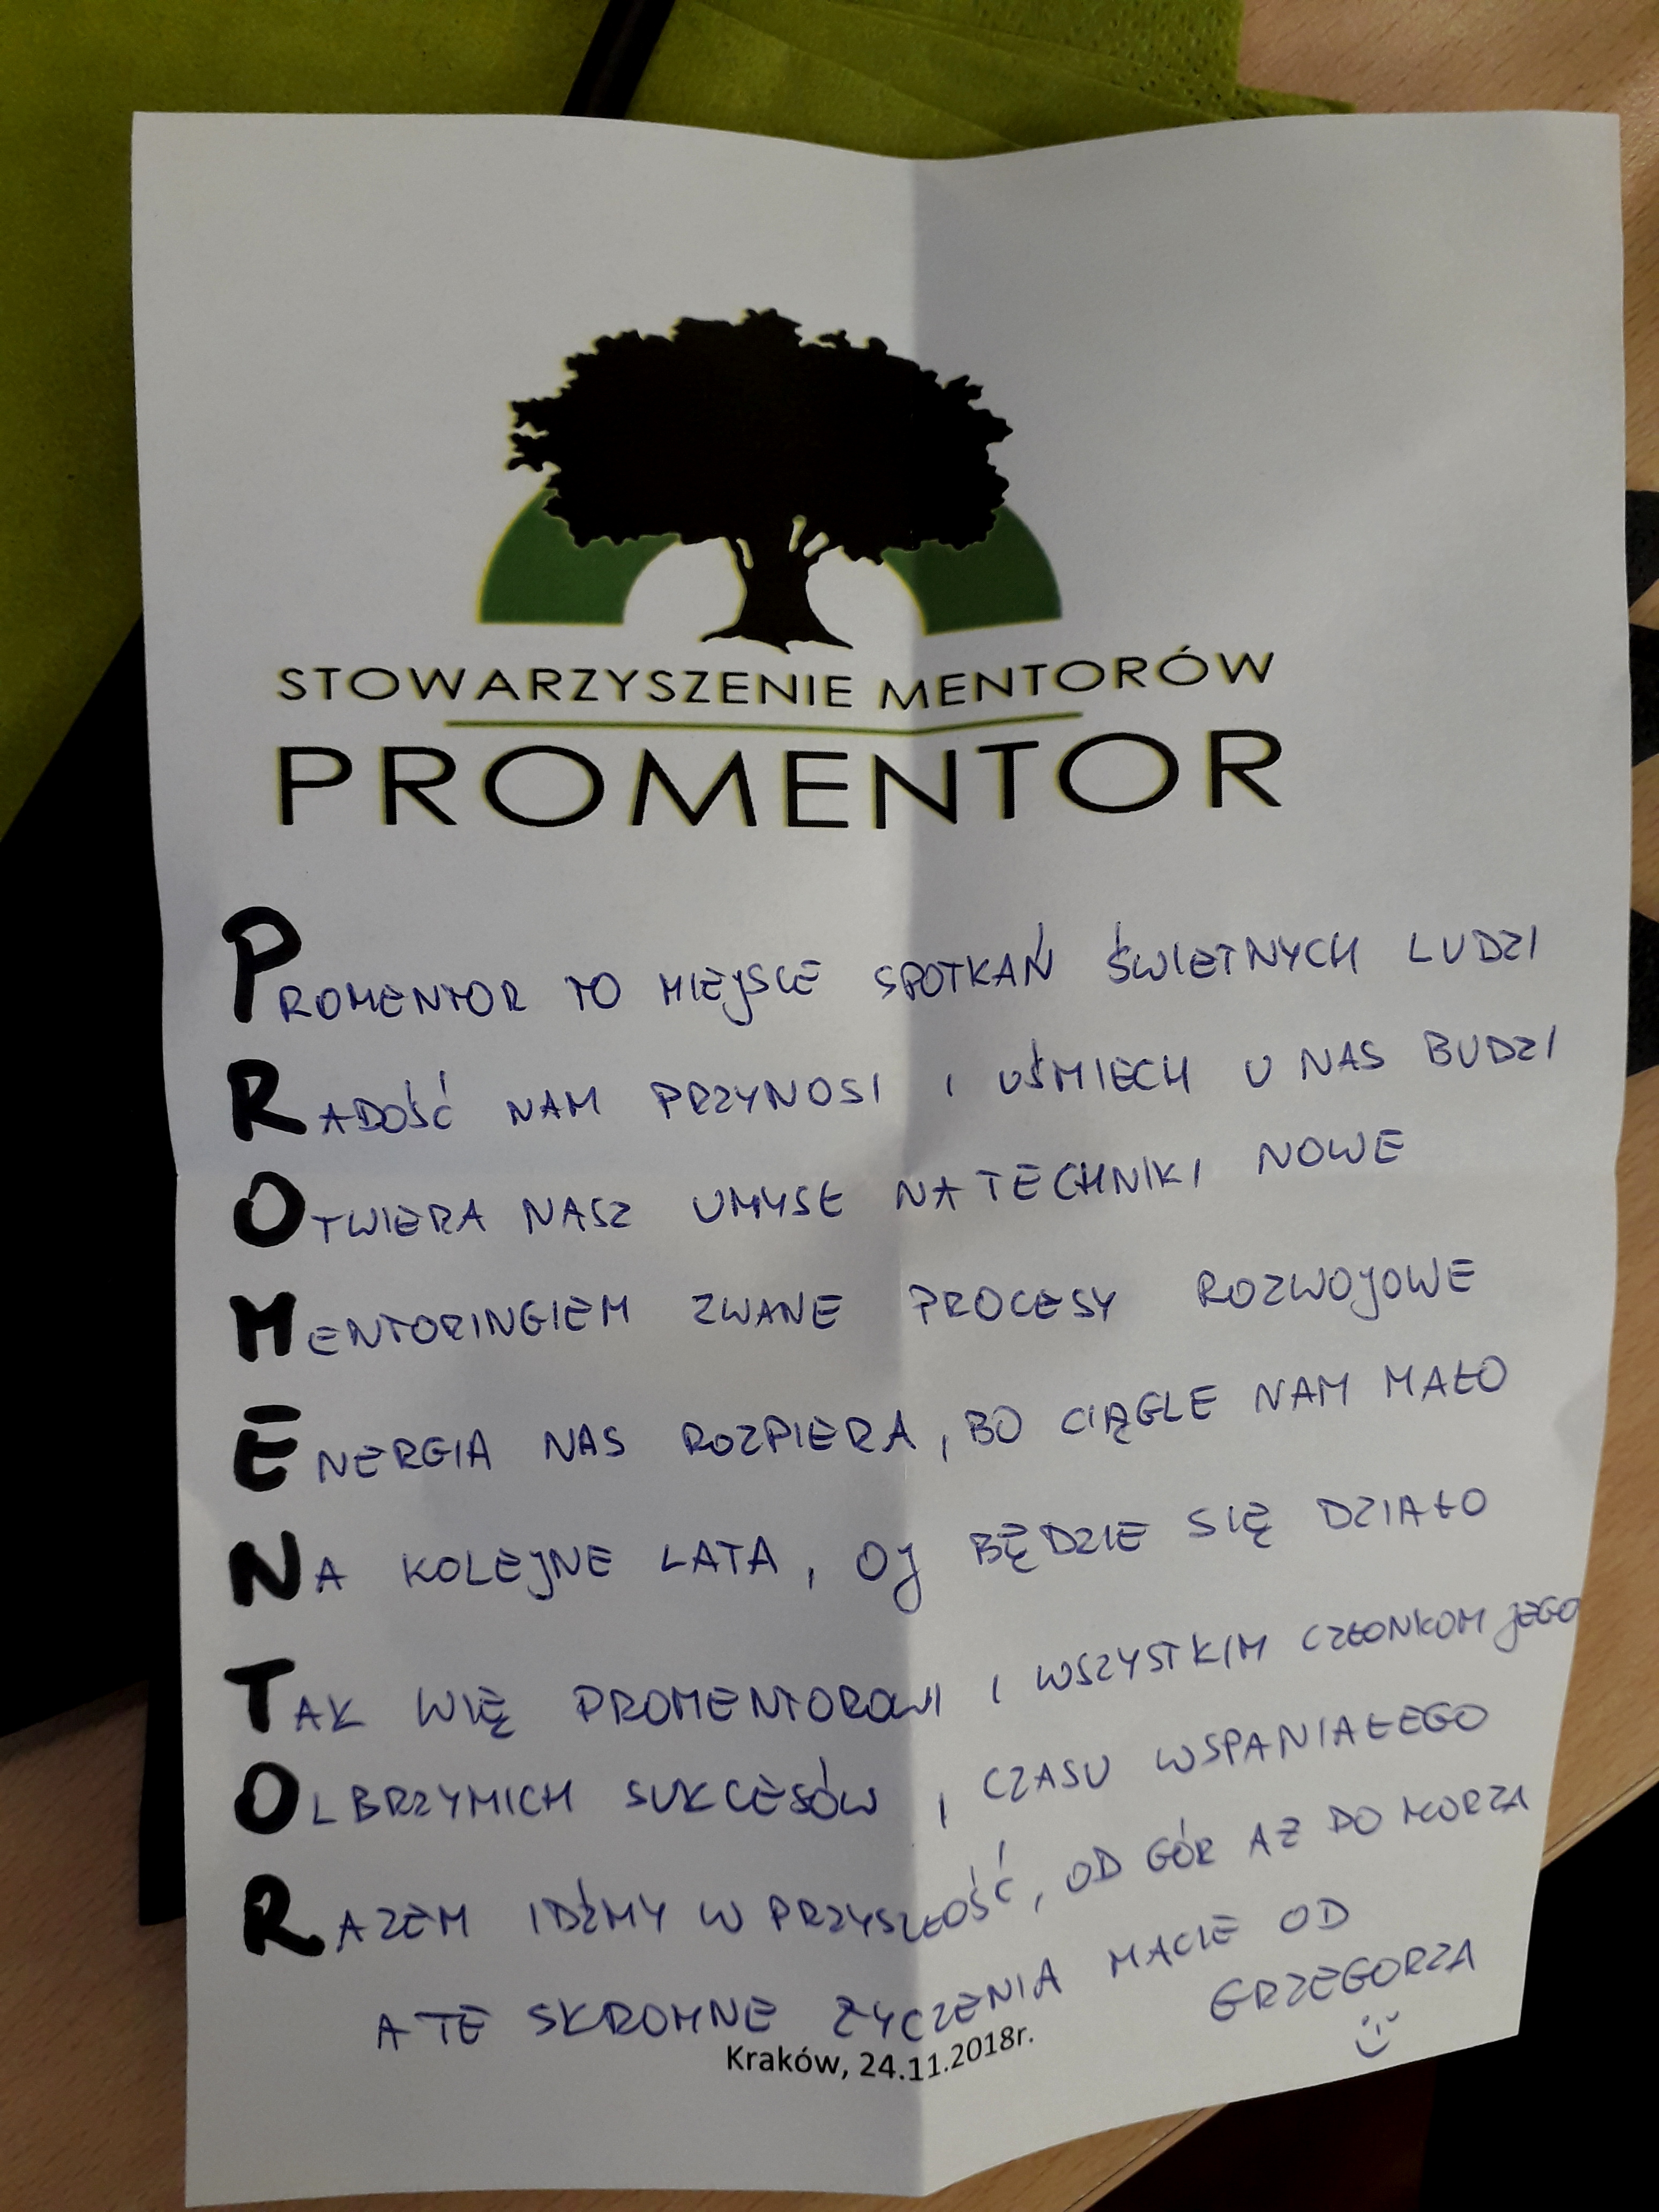 STOWARZYSZENIE MENTORÓW
PROMENTOR
PROMENTOR TO MIEJSCE SPOTKAŃ ŚWIETNYCH LUDZI
RADOŚĆ NAM PRZYNOSI I UŚMIECH U NAS BUDZI
OTWIERA NASZ UMYSŁ NA TECHNIKI NOWE
MENTORINGIEM ZWANE PROCESY ROZWOJOWE
ENERGIA NAS ROZPIERA, BO CIĄGLE NAM MAŁO
NA KOLEJNE LATA, OJ BĘDZIE SIĘ DZIAŁO
TAK WIĘ PROMENTOROWI I WSZYSTKIM CZŁONKOM JEGO
OLBRZYMICH SUKCESÓW, CZASU WSPANIAŁEGO
RAZEM IDŹMY W PRZYSZŁOŚĆ, OD GÓR AŻ DO MORZA
A TE SKROMNE ŻYCZENIA MACIE OD
GRZEGORZA
Kraków, 24.11.2018r.